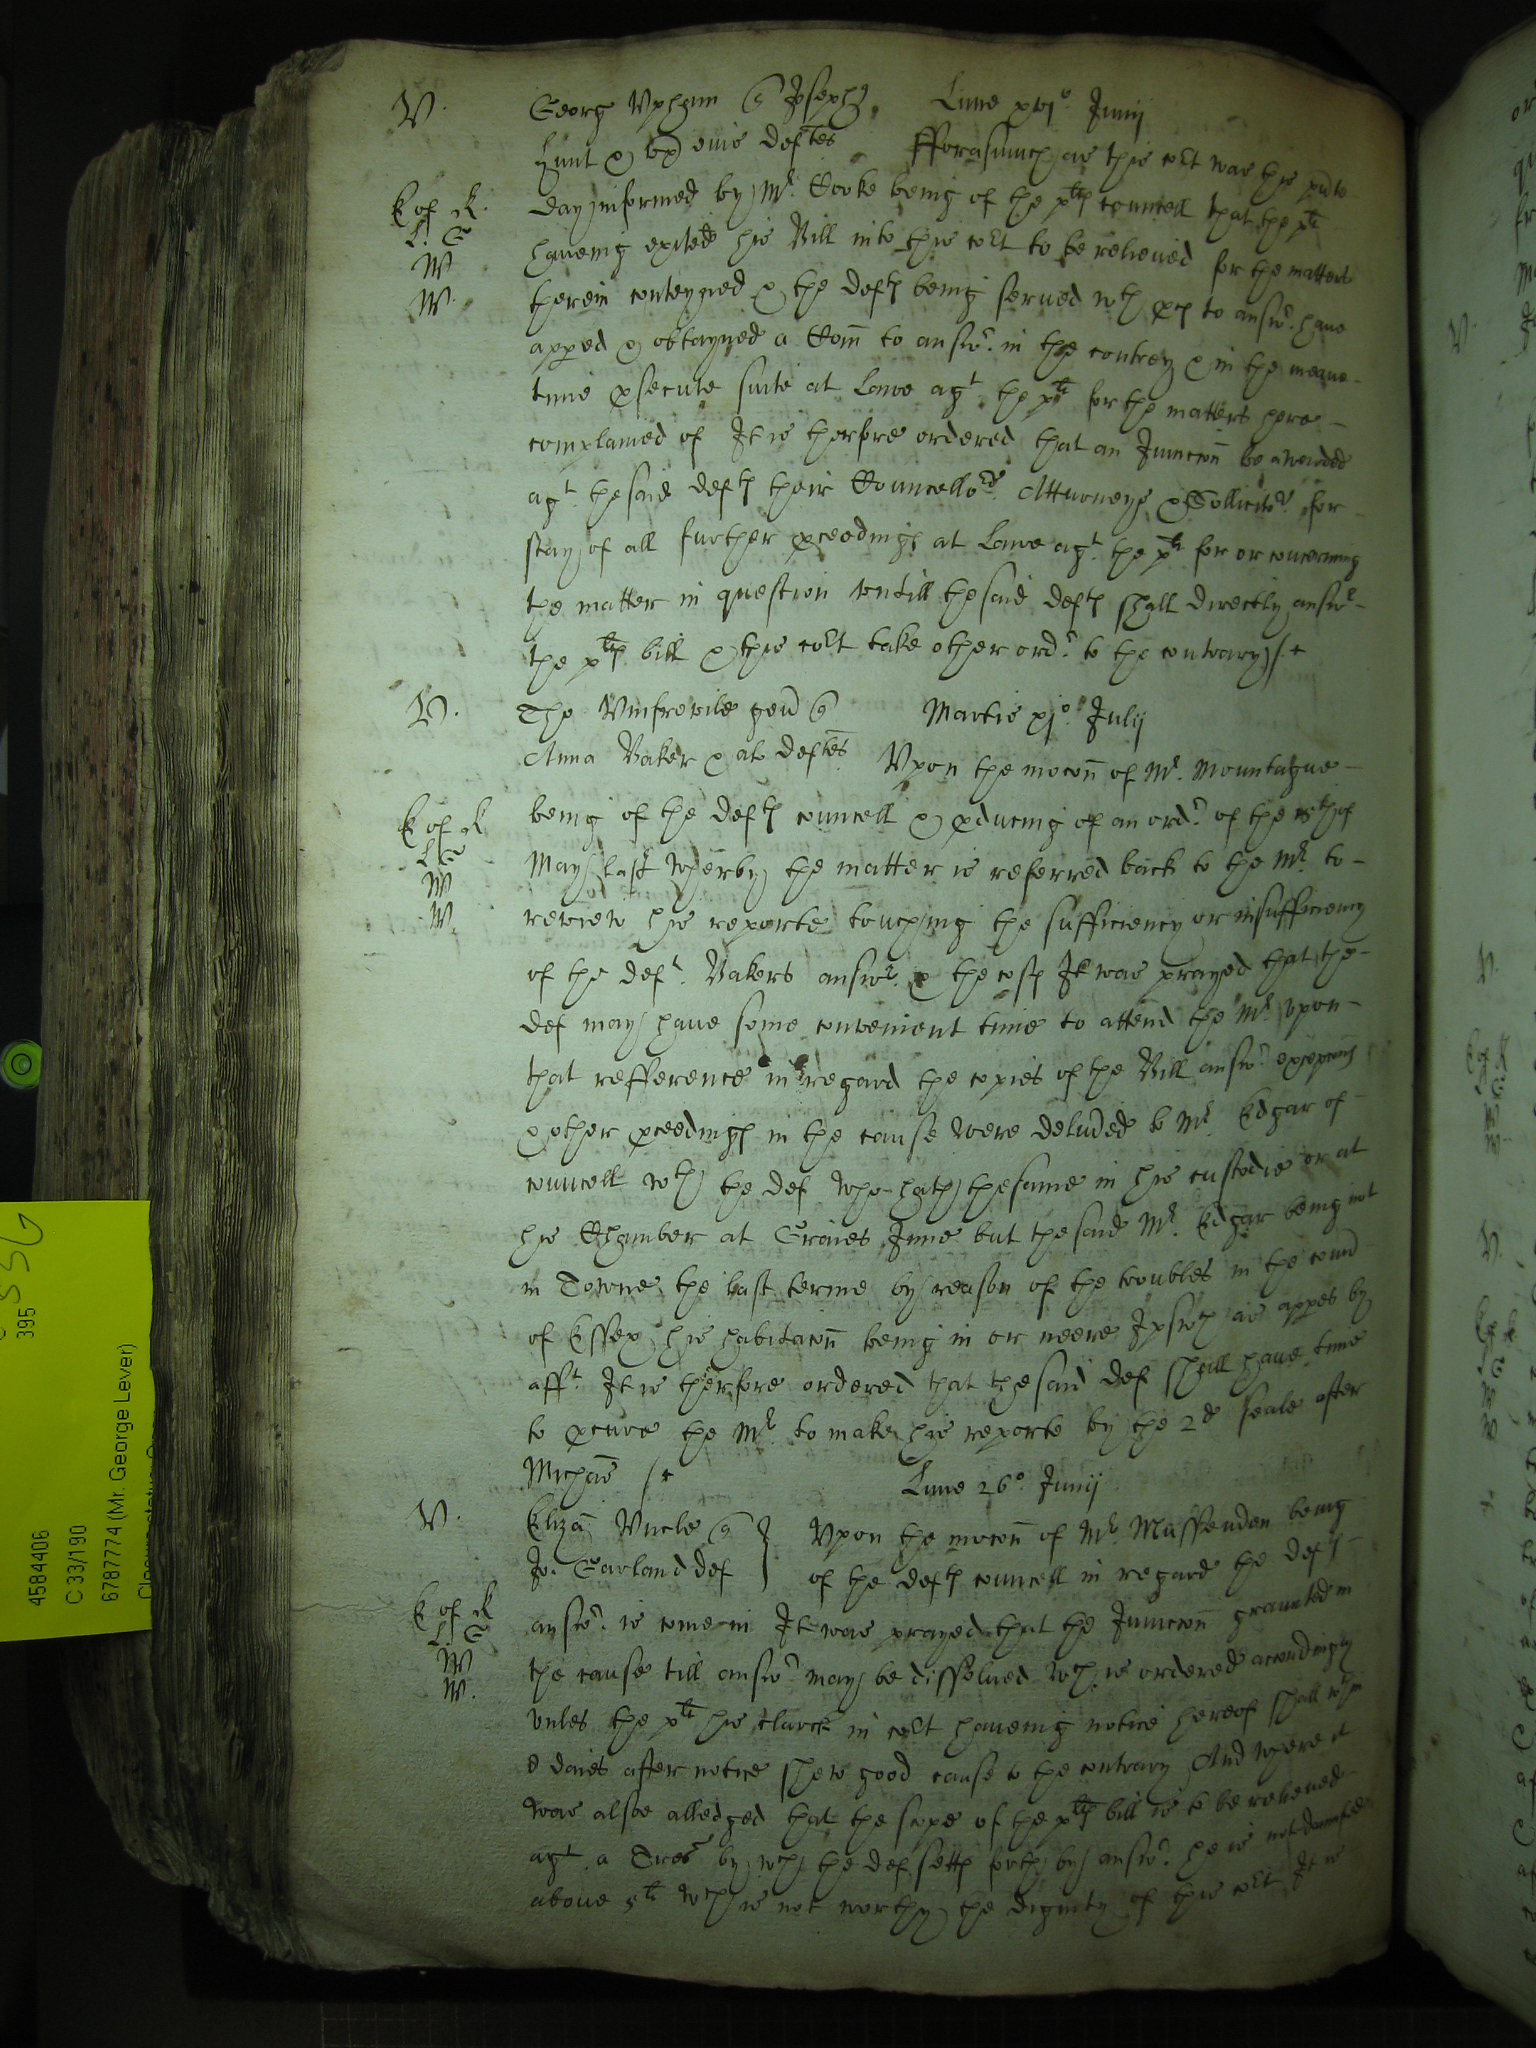 V.
Georg Vpham q Joseph
Lune xvjo. Junij
Hunt & vx eius deftes
Fforasmuch as this cort was this pnte
K of R.
day informed by Mr. Cooke being of the plts councell that the plt
L. G
haueing exhited his Bill into this cort to be releived for the matters
W
therein conteyned & the defts being served wth pces to answr. have
W.
apped & obtayned a Comn to answr. in the contrey & in the meane
time psecute suite at Lawe agt. the plt for the matters here
complained of It is therfore ordered that an Iniunccon be awarded
agt. the said defts their Councellors. Atturneys & Sollicitrs. for
stay of all further pceedings at Lawe agt. the plt for or concerning
the matter in question vntill the said defts shall directly answr
the plts bill & this cort take other ordr. to the contrary
V.
Tho Vmfrevile gen q
Martis xjo. Julij
Anna Baker & al deftes
Vpon the mocon of Mr. Mountague
K of R
being of the defts councell & pducing of an ordr. of the of
L G
May last wherby the matter is referred back to the Mr. to
W
review his reporte touching the sufficiency or insufficiency
W.
of the deft. Bakers answr. & the costs It was prayed that the
def may have some convenient time to attend the Mr. vpon
that refference in regard the copies of the Bill answr. excepcons
& other pceedings in the cause were deliued to Mr. Edgar of
councell wth the def who hath the same in his custodie or at
his Chamber at Graies Inne but the said Mr. Edgar being not
in Towne the last terme by reason of the troubles in the
of Essex his habitacon being in or neere Ipswch as appes by
afft. It is therfore ordered that the said def shall have time
to pcure the Mr. to make his reporte by the 2d seale after
Michas
Lune 26o. Junij
V.
Eliza Vncle q
Vpon the mocon of Mr. Muffenden being
Jo. Garland def
of the defts councell in regard the defts
K of R
answr. is come in It was prayed that the Iniunccon graunted in
L. G
the cause till answr. may be dissolued wch is ordered accordingly
W
W.
vnles the plt his clarck in cort haueing notice hereof shall wthin
8 daies after notice shew good cause to the contrary And where it
was alsoe alledged that the scope of the plts bill is to be releued
agt. a Tres by wch the def setts forth by answr. he is not damnified
above 5li wch is not worthy the dignity of this cort It is
4584406
C 33/190
6787774 (Mr. George Lever)
395